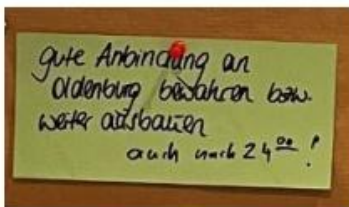 gute Anbindung an
Oldenburg bewahren bzw.
weiter ausbauen
auch nach 24⁰⁰ !